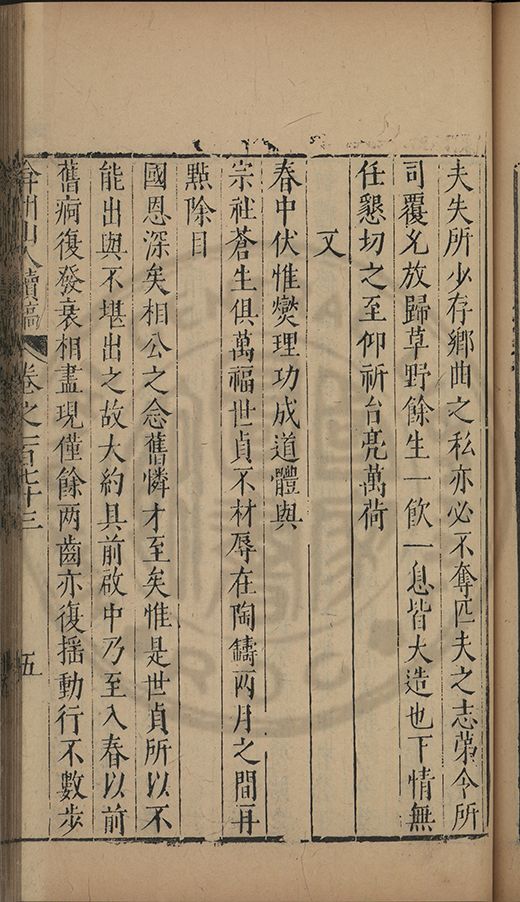 夫失所少存鄉曲之私亦必不奪匹夫之志第令所
司覆允放歸草野餘生一飲一息皆大造也下情無
任懇切之至仰祈台亮萬荷
又
春中伏惟燮理功成道體與
宗社蒼生俱萬福世貞不材辱在陶鑄兩月之間再
㸃除目
國恩深矣相公之念舊憐才至矣惟是世貞所以不
能出與不堪出之故大約具前啟中乃至入春以前
舊疴復發衰相盡現僅餘两齒亦復揺動行不數步
弇州山人續稿 卷之一百七十三 五